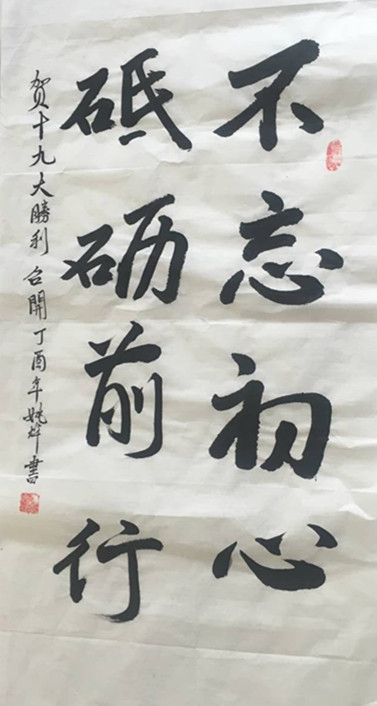 不忘初心
砥砺前行
贺十九大勝利召開丁酉年姚烨書